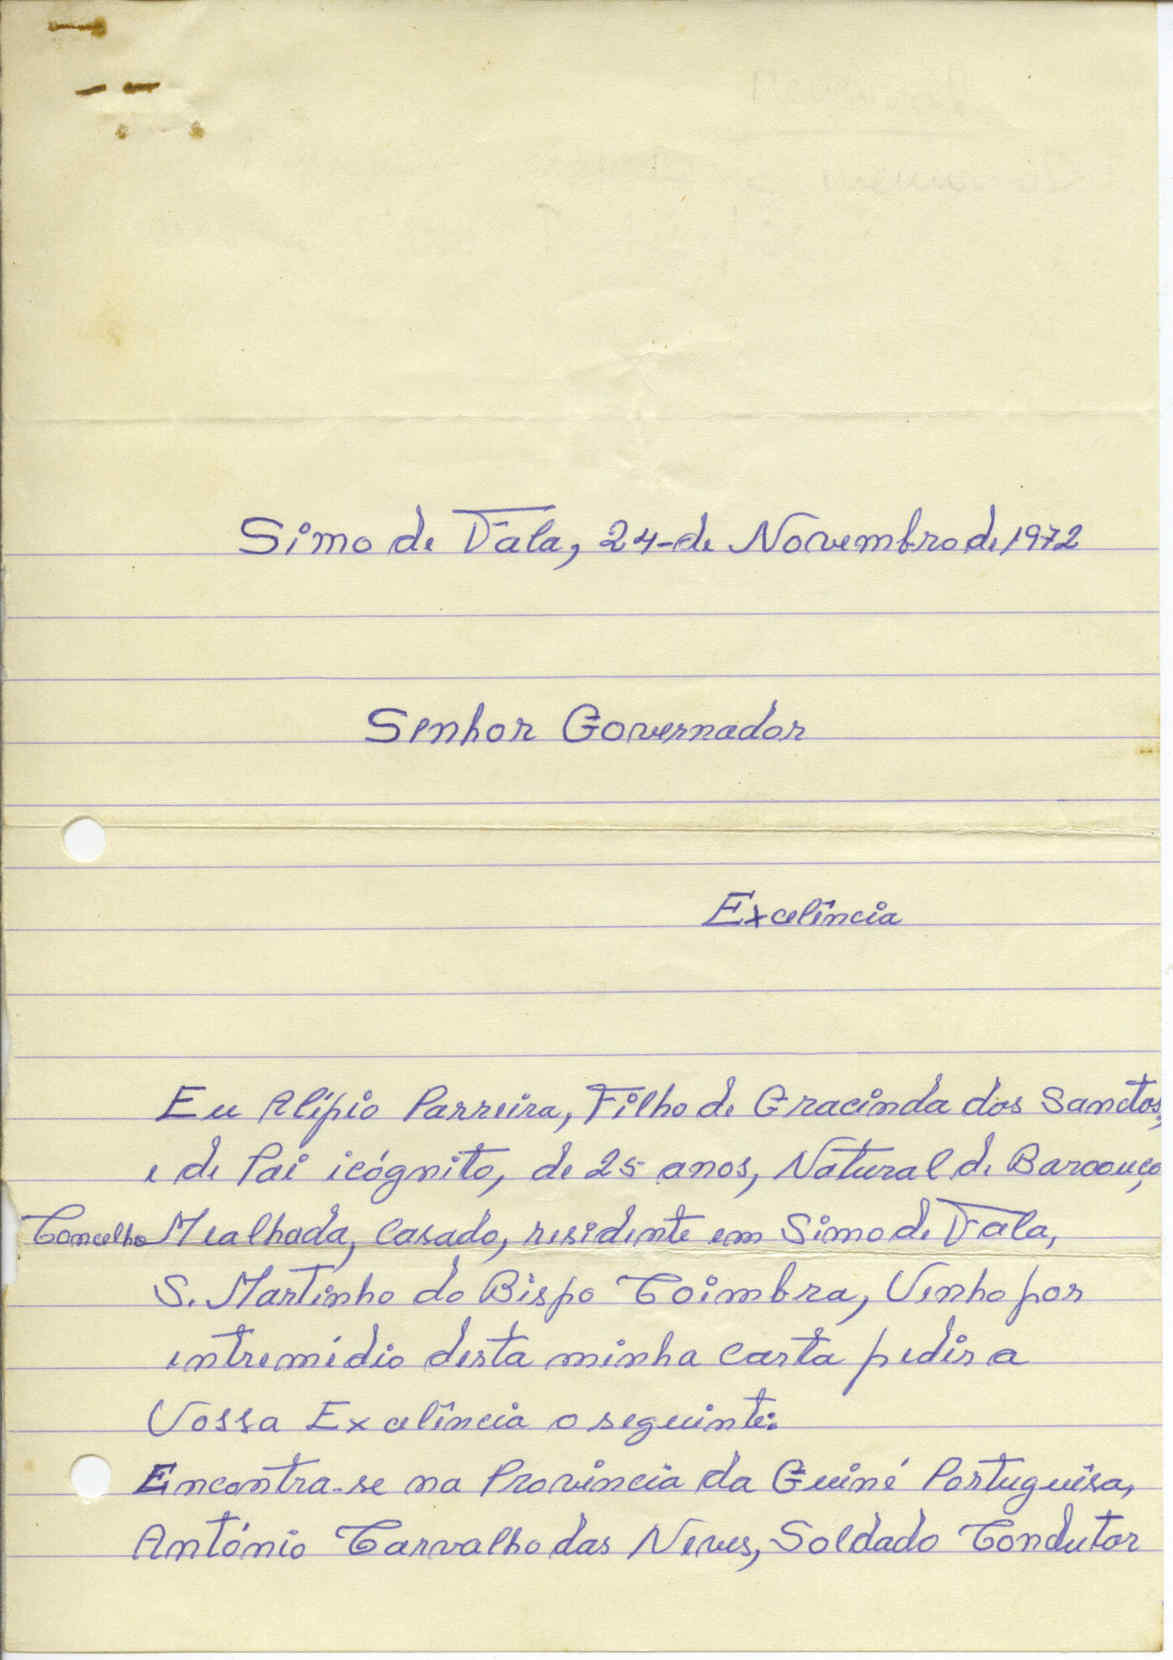 Simo de Vala, 24-de Novembro de 1972
Senhor Governador
Excelência
Eu Alípio Parreira, Filho de Gracinda dos Sanctos,
e de Pai icógnito, de 25 anos, Natural de Barcouço
Concelho Mealhada, Casado, residente em Simo de Vala,
S. Martinho do Bispo Coimbra, Venho por
intremédio desta minha carta pedir a
Vossa Excelência o seguinte:
Encontra-se na Província da Guiné Portuguêsa,
António Carvalho das Neves, Soldado Condutor